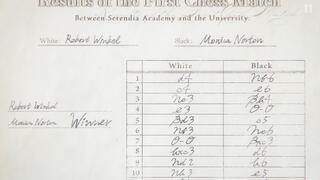 Results of the First Chess Match
Between Serendia Academy and the University:
White: Robert Winkel Black: Monica Norton
White Black
1 d4 Nf6
2 c4 e6
3 Nc3 Bb4
4 e3 O-O
Robert Winkel
5 Bd3 c5
Monica Norton Winner
6 Nf3 Nc6
7 O-O Bxc3
8 bxc3 d6
9 Nd2 b6
10 Nb3 e5